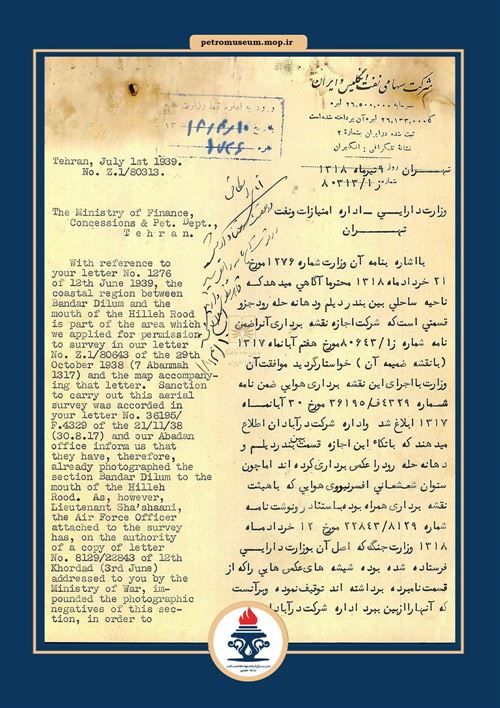 petromuseum.mop.ir
شرکت سهامی نفت انگلیس و ایران
سرمایه ۲۶,۵۰۰,۰۰۰ لیره
ثبت شده در ایران بشماره ۲
نشانهٔ تلگرافی: انگلیران
تهران روز ۹ تیرماه ۱۳۱۸
شماره ز/۸۰۳۱۳
Tehran, July 1st 1939.
No. Z.1/80313.
The Ministry of Finance,
Concessions & Pet. Dept.,
Tehran.
With reference to
your letter No. 1276
of 12th June 1939, the
coastal region between
Bandar Dilum and the
mouth of the Hilleh Rood
is part of the area which
we applied for permission
to survey in our letter
No. Z.1/80643 of the 29th
October 1938 (7 Abanmah
1317) and the map accompany-
ing that letter. Sanction
to carry out this aerial
survey was accorded in
your letter No. 36195/
F.4329 of the 21/11/38
(30.8.17) and our Abadan
office inform us that
they have, therefore,
already photographed the
section Bandar Dilum to the
mouth of the Hilleh
Rood. As, however,
Lieutenant Sha'shaani,
the Air Force Officer
attached to the survey
has, on the authority
of a copy of letter
No. 8129/22843 of 12th
Khordad (3rd June)
addressed to you by the
Ministry of War, im-
pounded the photographic
negatives of this sec-
tion, in order to
وزارت دارایی – اداره امتیازات و نفت
تهران
با اشاره بنامه آن وزارت شماره ۱۲۷۶ مورخ
۲۱ خرداد ماه ۱۳۱۸ محترما آگاهی میدهد که
ناحیه ساحلی بین بندر دیلم و دهانه حله رود جزو
قسمتی است که شرکت اجازه نقشه برداری آنرا ضمن
نامه شماره ز۱/۸۰۶۴۳ مورخ هفتم آبانماه ۱۳۱۷
(با نقشه ضمیمه آن) خواستار گردید موافقت آن
وزارت با اجرای این نقشه برداری هوایی ضمن نامه
شماره ۴۳۲۹ف/۳۶۱۹۵ مورخ ۳۰ آبانماه
۱۳۱۷ ابلاغ شد و اداره شرکت در آبادان اطلاع
میدهند که باتکاء این اجازه قسمت بین بندر دیلم و
دهانه حله رود را عکس برداری کرده اند اما چون
ستوان شعشعانی افسر نیروی هوایی که با هیئت
نقشه برداری همراه بود باستناد رونوشت نامه
شماره ۲۲۸۴۳/۸۱۲۹ مورخ ۱۲ خرداد ماه
۱۳۱۸ وزارت جنگ که اصل آن بوزارت دارایی
فرستاده شده بوده شیشه های عکس هایی را که از
قسمت نامبرده برداشته اند توقیف نموده و بر آنست
که آنها را از بین ببرد اداره شرکت در آبادان